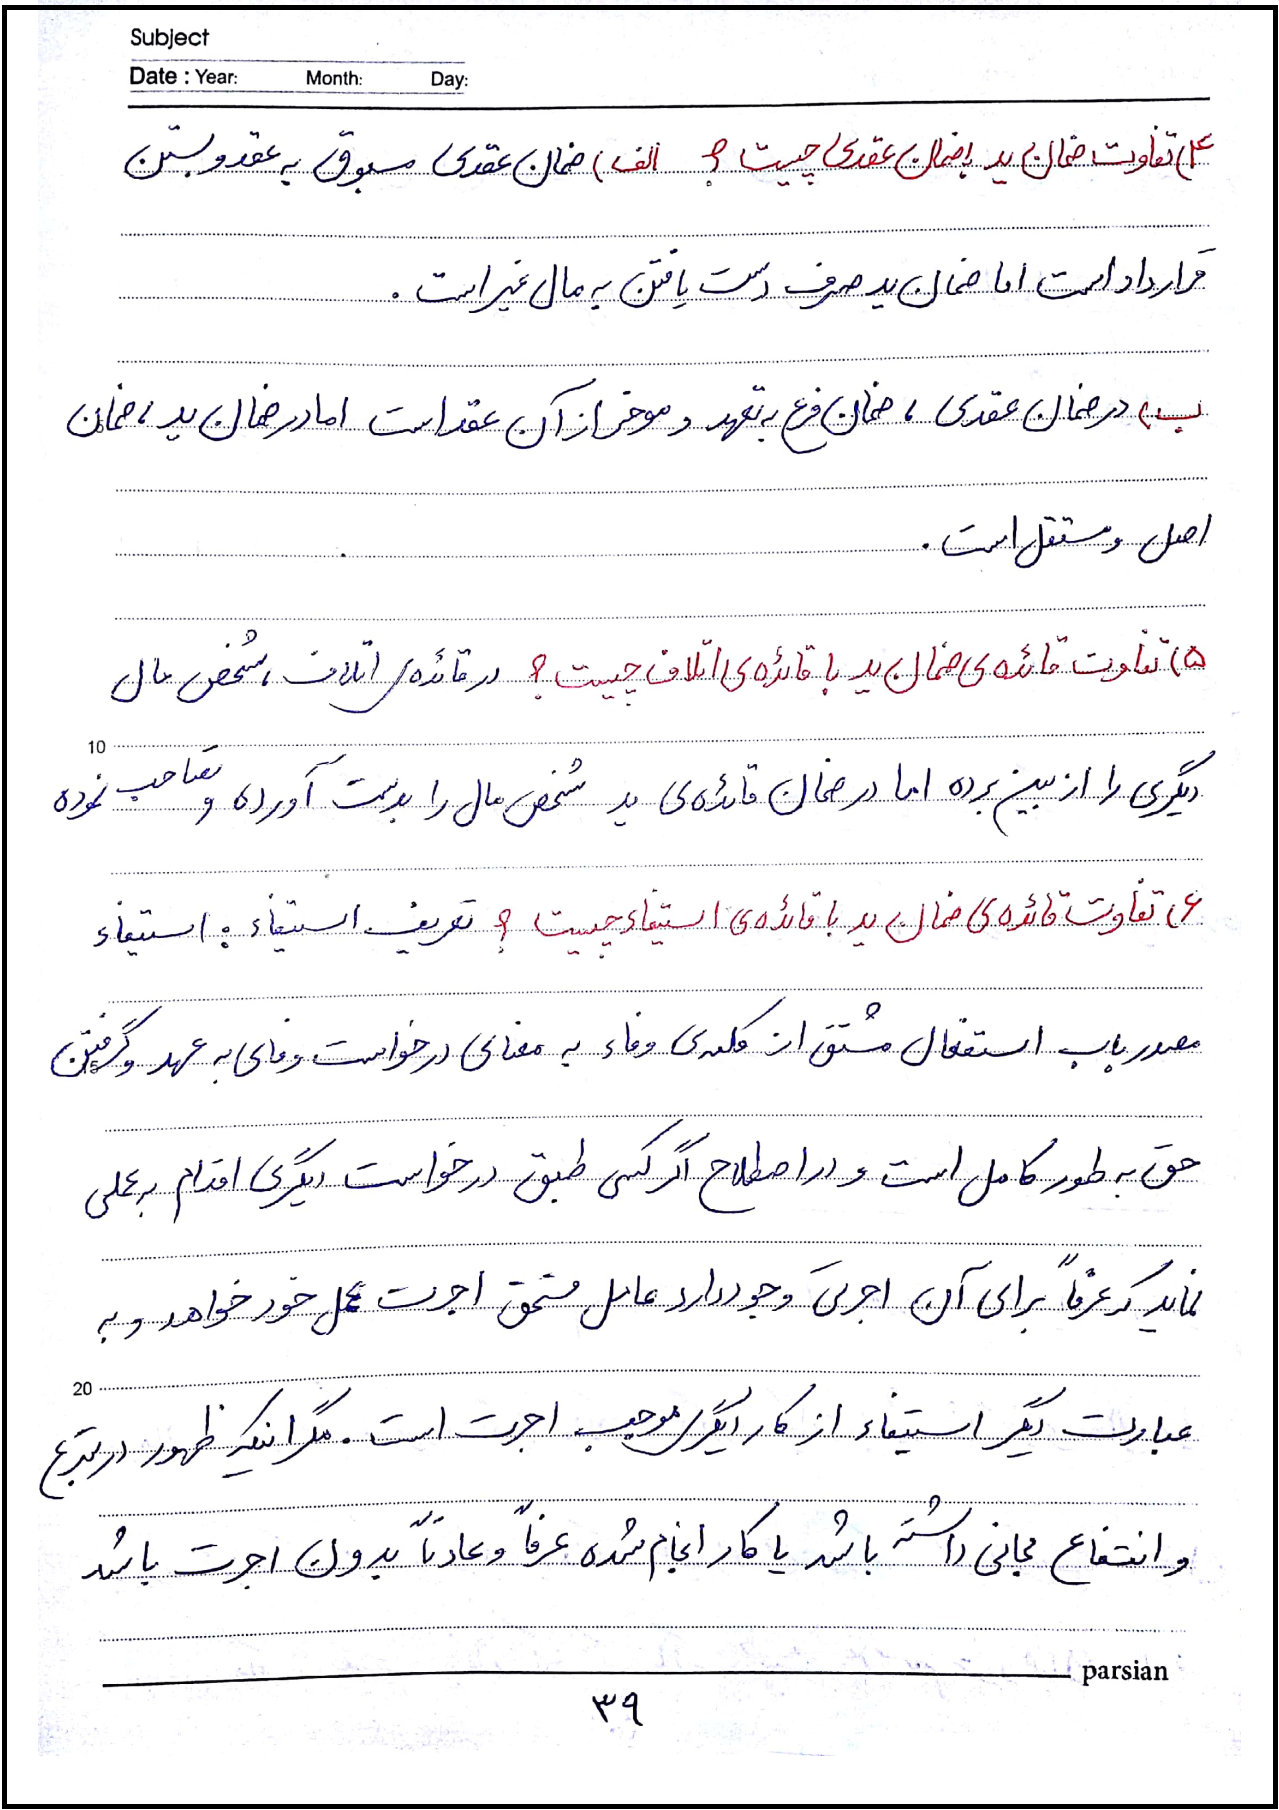 Subject
Date : Year: Month: Day:
۴) تفاوت ضمان ید با ضمان عقدی چیست ؟ الف) ضمان عقدی مسبوق به عقد و بستن
قرارداد است اما ضمان ید صرف دست یافتن به مال غیر است .
ب) در ضمان عقدی ، ضمان فرع به تعهد و موخر از آن عقد است اما در ضمان ید ، ضمان
اصل و مستقل است .
۵) تفاوت قائده ی ضمان ید با قائده ی اتلاف چیست ؟ در قائده ی اتلاف ، شخص مال
10
دیگری را از بین برده اما در ضمان قائده ی ید شخص مال را بدست آورده و تصاحب نموده
۶) تفاوت قائده ی ضمان ید با قائده ی استیفاء چیست ؟ تعریف استیفاء : استیفاء
مصدر باب استفعال مشتق از کلمه ی وفاء به معنای درخواست وفای به عهد و گرفتن
حق به طور کامل است و در اصطلاح اگر کسی طبق درخواست دیگری اقدام به عملی
نماید که عرفاً برای آن اجرتی وجود دارد عامل مستحق اجرت عمل خود خواهد و به
20
عبارت دیگر استیفاء از کار دیگری موجب اجرت است . مگر اینکه ظهور در تبرع
و انتفاع مجانی داشته باشد یا کار انجام شده عرفاً و عادتاً بدون اجرت باشد
parsian
۳۹